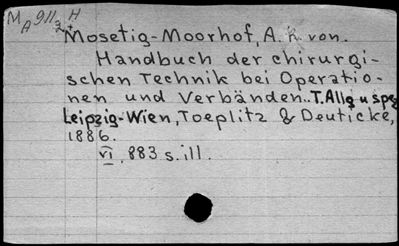 M A 911 H
Mosetig-Moorhof, A. R. von.
Handbuch der chirurgi-
schen Technik bei Operatio-
nen und Verbänden.. T. Allg u spez
Leipzig-Wien, Toeplitz & Deuticke,
1886.
VI, 883 s. ill.